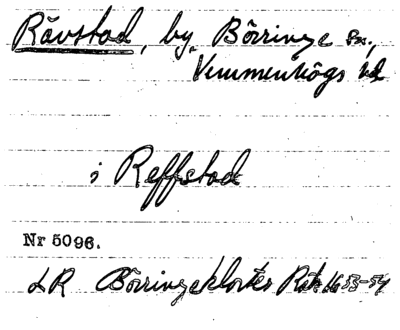 Rävstad, by, Börringe sn,
Vemmenhögs hd
i Reffstad
Nr 5096.
LR Börringekloster Räk 1653-54